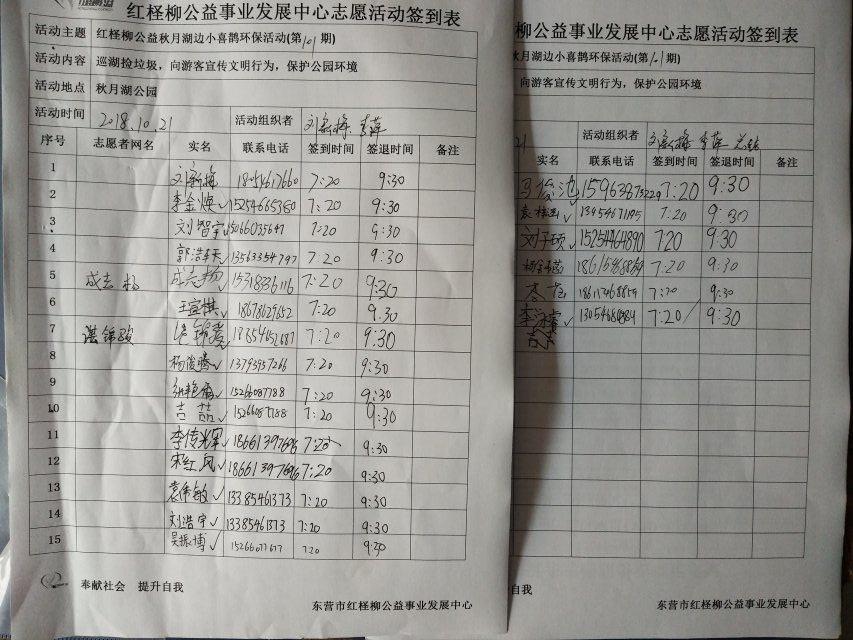 红柽柳公益事业发展中心志愿活动签到表
活动主题 红柽柳公益秋月湖边小喜鹊环保活动(第101期)
活动内容 巡湖捡垃圾，向游客宣传文明行为，保护公园环境
活动地点 秋月湖公园
活动时间 2018.10.21 活动组织者 李萍
序号 志愿者网名 实名 联系电话 签到时间 签退时间 备注
1 7:20 9:30
2 李金焕 15254665380 7:20 9:30
3 刘智宇 15066035647 7:20 9:30
4 郭浩轩 13563354797 7:20 9:30
5 成志杨 成志杨 15318336116 7:20 9:30
6 王宣棋 18678629652 7:20 9:30
7 7:20 9:30
8 杨俊腾 13793957266 7:20 9:30
9 张艳 15266087788 7:20 9:30
10 吉喆 15266087788 7:20 9:30
11 李传光军 18661397696 7:20 9:30
12 宋红凤 18661397696 7:20 9:30
13 袁伟敏 13385461373 7:20 9:30
14 刘浩宇 13385461373 7:20 9:30
15 吴振博 15266077677 7:20 9:30
奉献社会 提升自我
东营市红柽柳公益事业发展中心
柳公益事业发展中心志愿活动签到表
秋月湖边小喜鹊环保活动(第101期)
，向游客宣传文明行为，保护公园环境
21 活动组织者 李萍
实名 联系电话 签到时间 签退时间 备注
马俊池 7:20 9:30
13454671195 7:20 9:30
刘子硕 15254464890 7:20 9:30
7:20 9:30
7:20 9:30
7:20 9:30
自我
东营市红柽柳公益事业发展中心